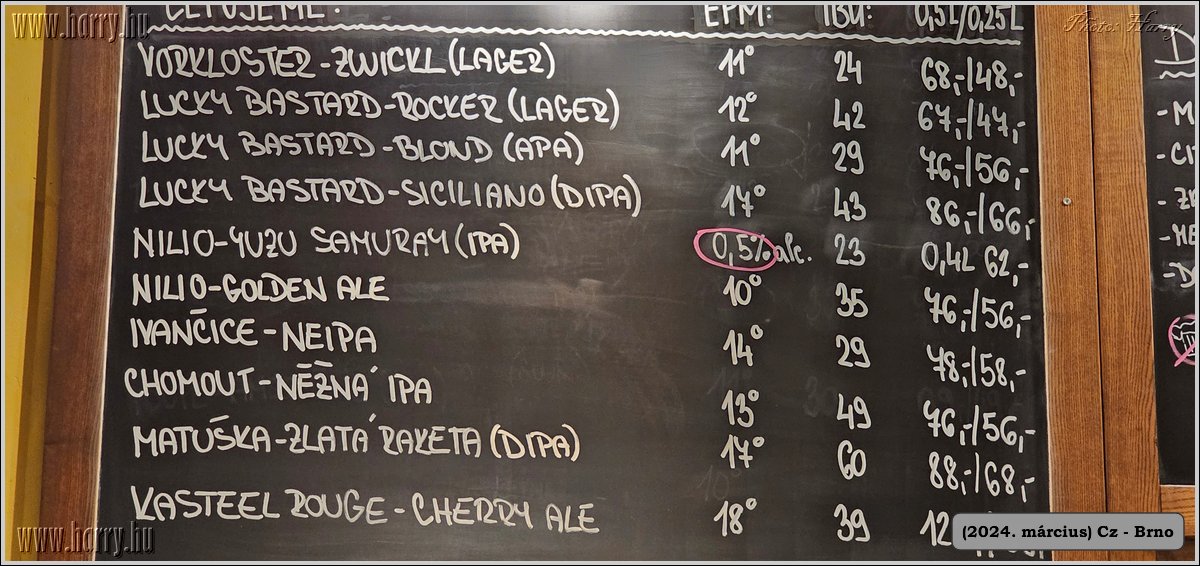 www.horry.hu
ČEPUJEME: EPM: IBU: 0,5L/0,25L
Photo: Harry
VORKLOSTER-ZWICKL (LAGER) 11° 24 68,-/48,-
LUCKY BASTARD-ROCKER (LAGER) 12° 42 67,-/47,-
LUCKY BASTARD-BLOND (APA) 11° 29 76,-/56,-
LUCKY BASTARD-SICILIANO (DIPA) 17° 43 86,-/66,-
NILIO-YUZU SAMURAY (IPA) 0,5% alc. 23 0,4L 62,-
NILIO-GOLDEN ALE 10° 35 76,-/56,-
IVANČICE-NEIPA 14° 29 78,-/58,-
CHOMOUT-NĚŽNÁ IPA 13° 49 76,-/56,-
MATUŠKA-ZLATÁ RAKETA (DIPA) 17° 60 88,-/68,-
KASTEEL ROUGE-CHERRY ALE 18° 39
www.horry.hu
(2024. március) Cz - Brno